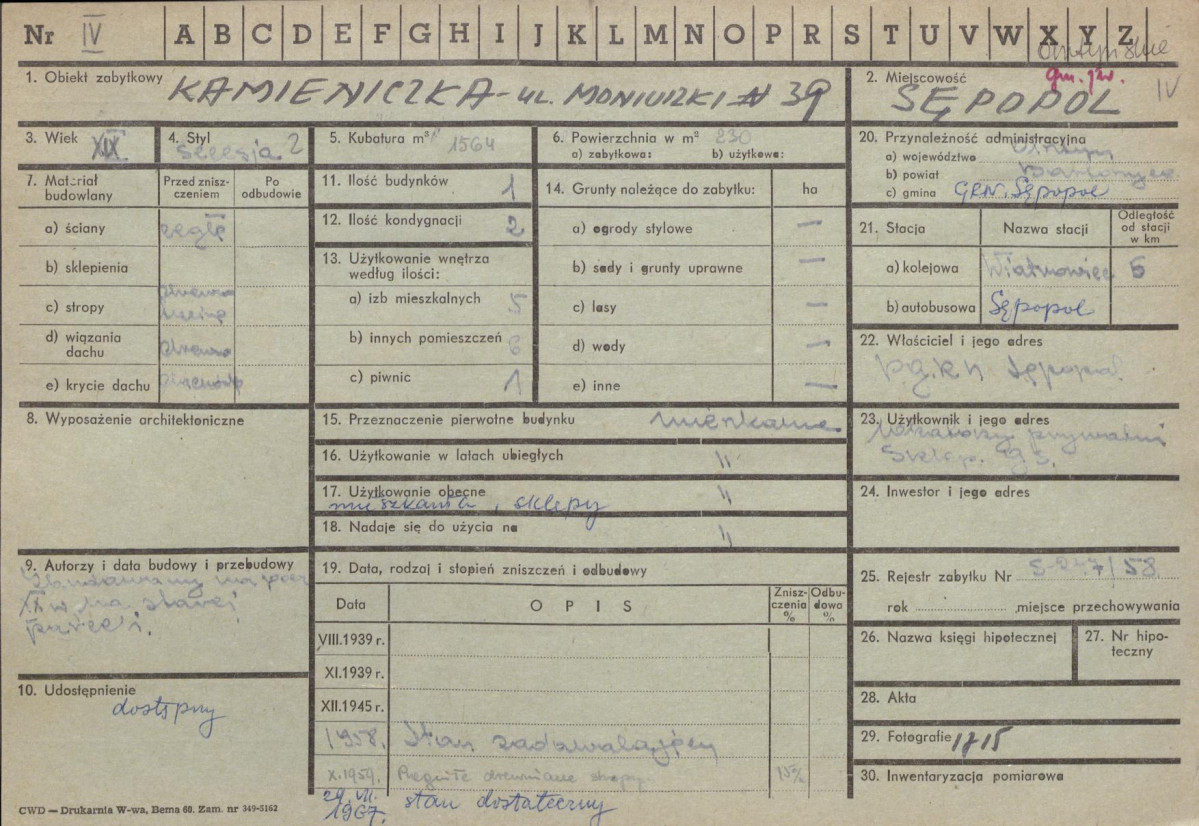 Nr IV A B C D E F G H I J K L M N O P R S T U V W X Y Z
1. Obiekt zabytkowy
KAMIENICZKA - UL. MONIUSZKI 39
2. Miejscowość
gm. IV
SĘPOPOL
3. Wiek XIX
4. Styl
secesja 2
5. Kubatura m³ 1564
6. Powierzchnia w m² 230
a) zabytkowa: b) użytkowa:
20. Przynależność administracyjna
a) województwo
b) powiat
c) gmina GRN. Sępopol
7. Materiał budowlany
Przed zniszczeniem
Po odbudowie
a) ściany cegła
b) sklepienia
c) stropy
d) wiązania dachu drewno
e) krycie dachu
11. Ilość budynków 1
12. Ilość kondygnacji 2
13. Użytkowanie wnętrza według ilości:
a) izb mieszkalnych 5
b) innych pomieszczeń 6
c) piwnic 1
14. Grunty należące do zabytku: ha
a) ogrody stylowe —
b) sady i grunty uprawne —
c) lasy —
d) wody —
e) inne —
21. Stacja
Nazwa stacji
Odległość od stacji w km
a) kolejowa Wiatrowiec 6
b) autobusowa Sępopol
22. Właściciel i jego adres
Sępopol
8. Wyposażenie architektoniczne
15. Przeznaczenie pierwotne budynku mieszkanie
16. Użytkowanie w latach ubiegłych "
17. Użytkowanie obecne "
mieszkania, sklepy
18. Nadaje się do użycia na "
23. Użytkownik i jego adres
lokatorzy prywatni
Sklep.
24. Inwestor i jego adres
9. Autorzy i data budowy i przebudowy
XX w na starej
10. Udostępnienie
dostępny
19. Data, rodzaj i stopień zniszczeń i odbudowy
Data
OPIS
Zniszczenia %
Odbudowa %
VIII.1939 r.
XI.1939 r.
XII.1945 r.
1958. Stan zadawalający
X.1959. drewniane stropy. 15%
24.VII.1967. stan dostateczny
25. Rejestr zabytku Nr S-247/58
rok ,miejsce przechowywania
26. Nazwa księgi hipotecznej
27. Nr hipoteczny
28. Akta
29. Fotografie 1715
30. Inwentaryzacja pomiarowa
CWD — Drukarnia W-wa, Bema 60. Zam. nr 349-5162